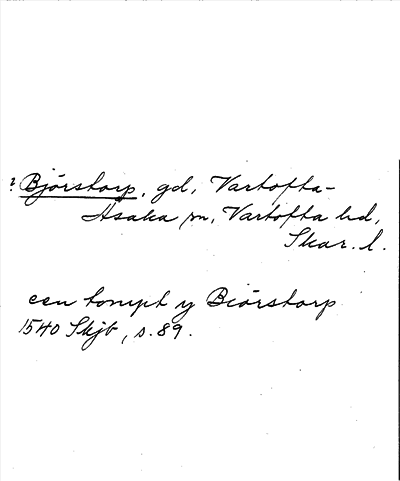 ? Björstorp, gd, Vartofta-
Åsaka sn, Vartofta hd,
Skar. l.
een tompt y Biörstorp
1540 Skjb, s. 89.